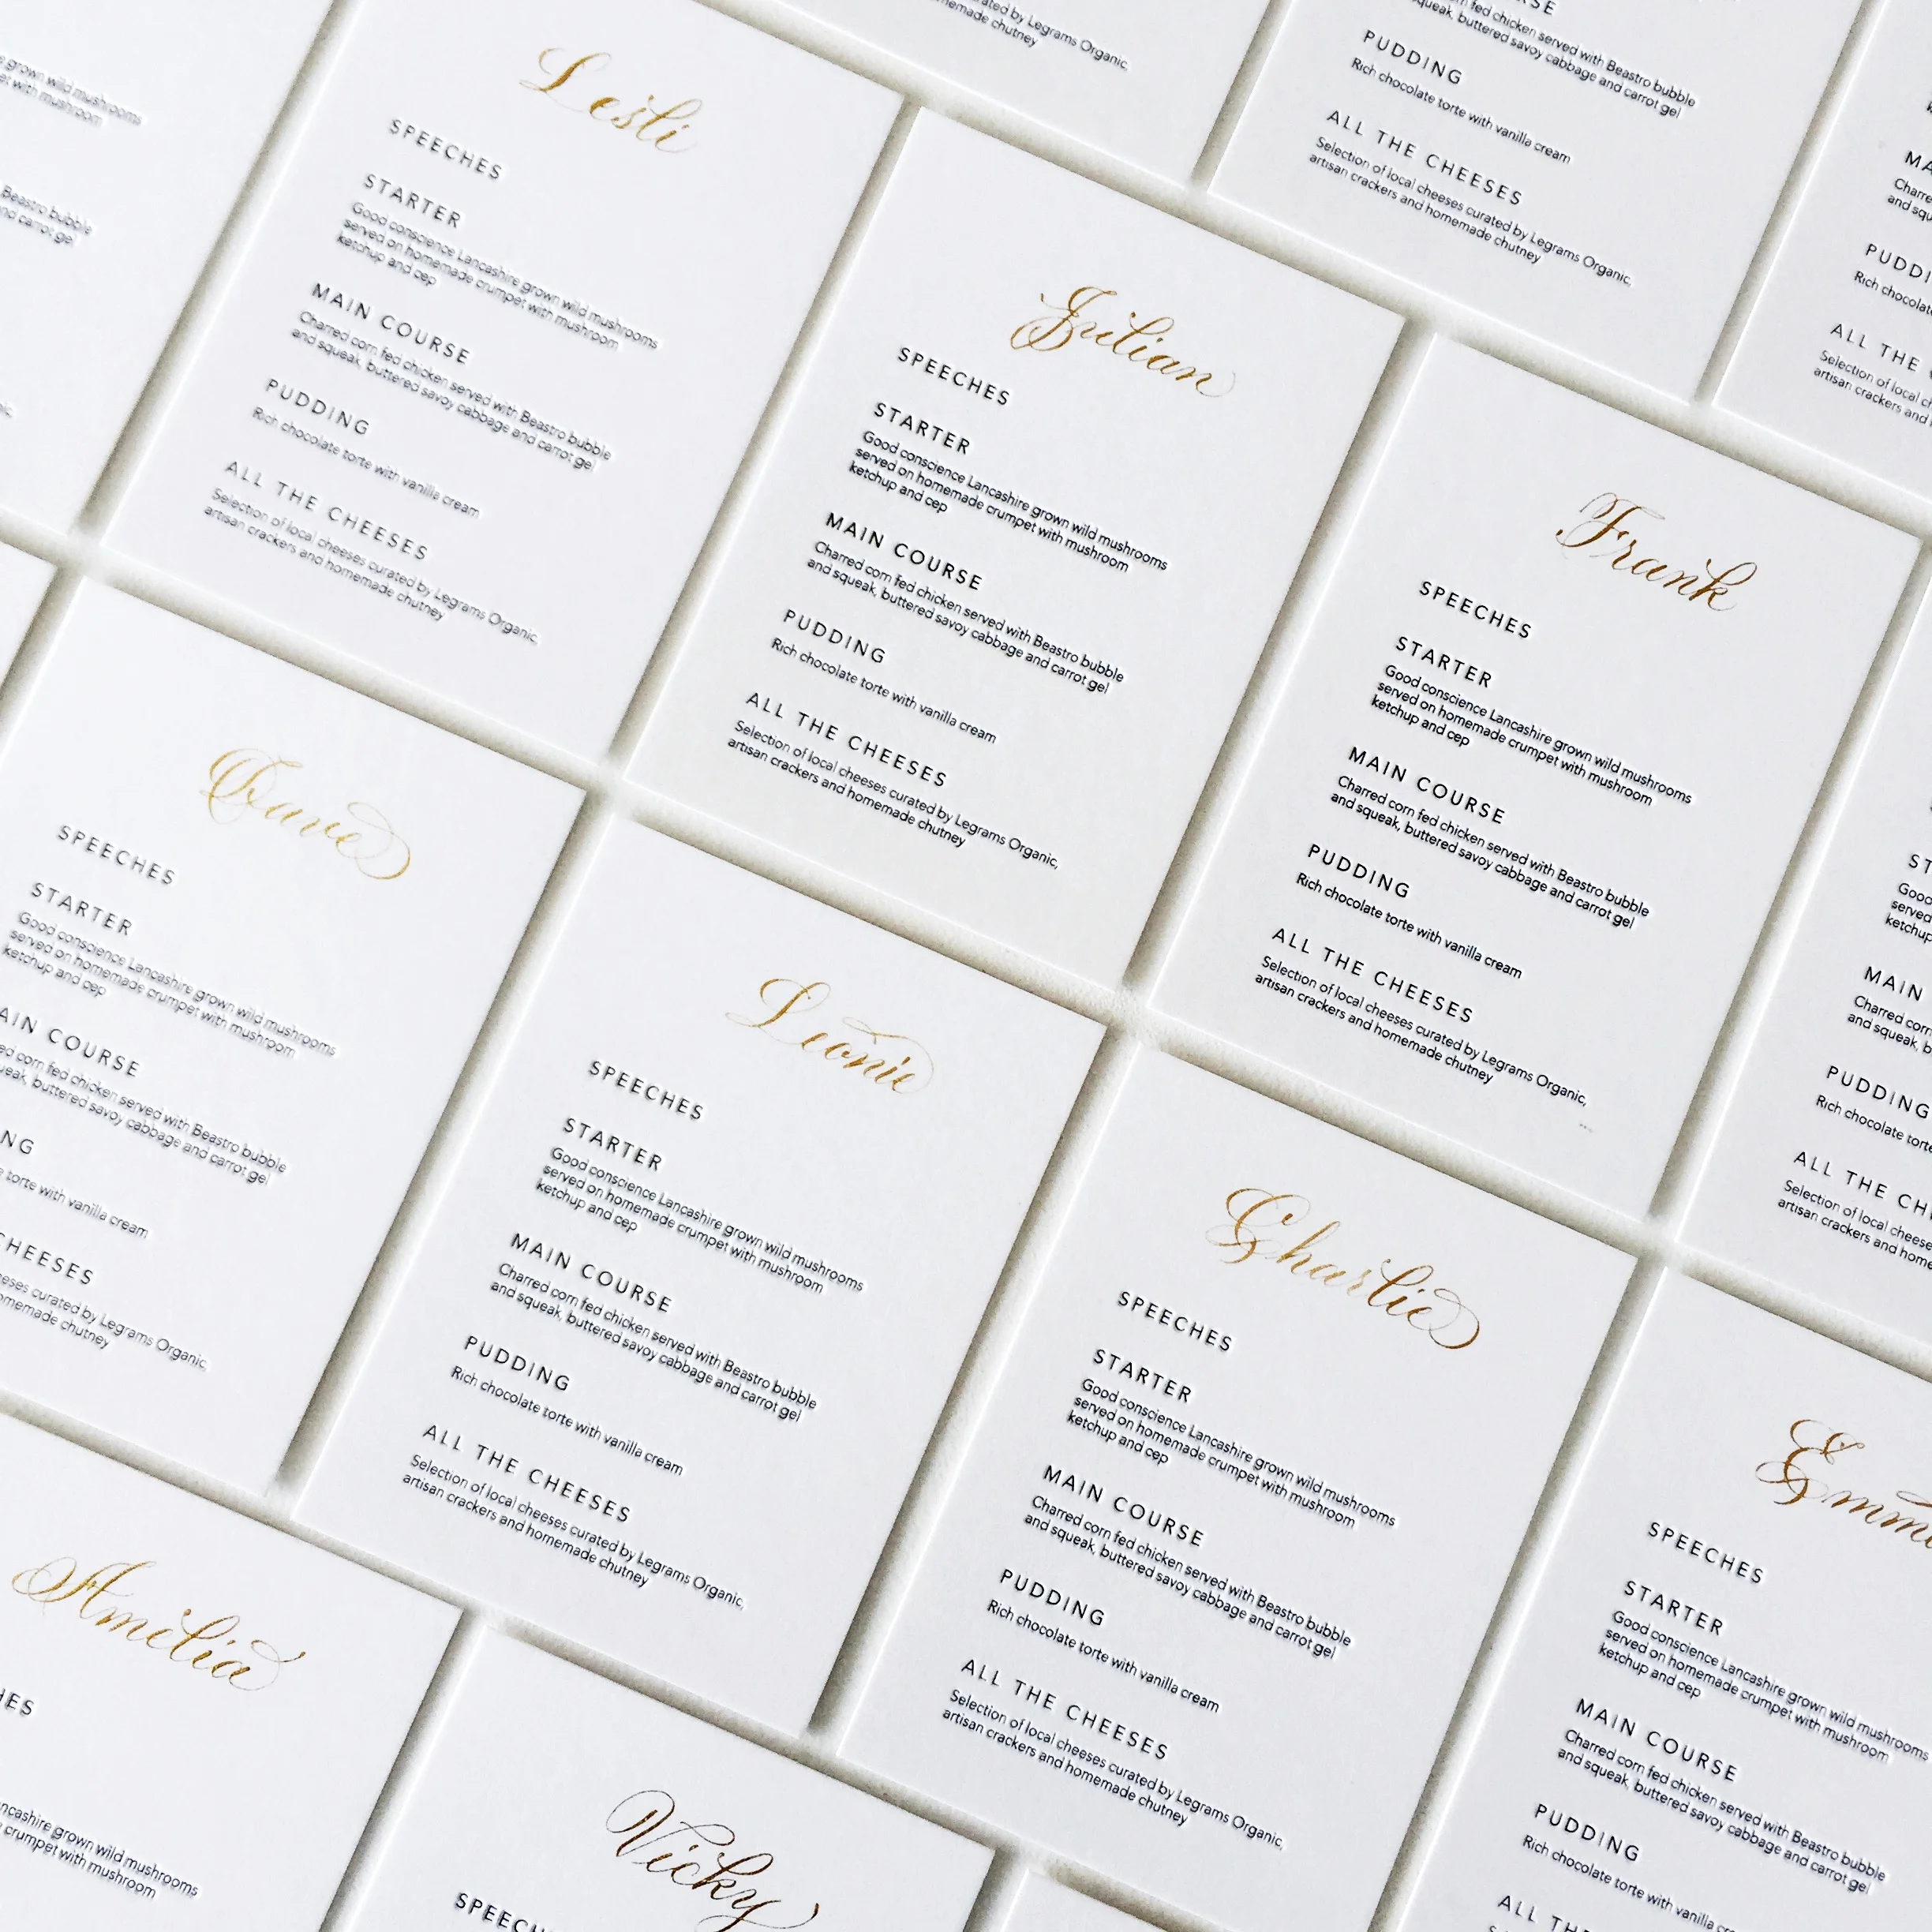 curated by Legrams Organic,
homemade chutney
fed chicken served with Beastro bubble
squeak, buttered savoy cabbage and carrot gel
PUDDING
Rich chocolate torte with vanilla cream
ALL THE CHEESES
Selection of local cheeses curated by Legrams Organic,
artisan crackers and homemade chutney
and squ
PUDDI
Rich chocolat
ALL THE
Selection of local ch
artisan crackers and
grown wild mushrooms
et with mushroom
Beastro bubble
and carrot gel
Lesli
SPEECHES
STARTER
Good conscience Lancashire grown wild mushrooms
served on homemade crumpet with mushroom
ketchup and cep
MAIN COURSE
Charred corn fed chicken served with Beastro bubble
and squeak, buttered savoy cabbage and carrot gel
PUDDING
Rich chocolate torte with vanilla cream
ALL THE CHEESES
Selection of local cheeses curated by Legrams Organic,
artisan crackers and homemade chutney
Julian
SPEECHES
STARTER
Good conscience Lancashire grown wild mushrooms
served on homemade crumpet with mushroom
ketchup and cep
MAIN COURSE
Charred corn fed chicken served with Beastro bubble
and squeak, buttered savoy cabbage and carrot gel
PUDDING
Rich chocolate torte with vanilla cream
ALL THE CHEESES
Selection of local cheeses curated by Legrams Organic,
artisan crackers and homemade chutney
Frank
SPEECHES
STARTER
Good conscience Lancashire grown wild mushrooms
served on homemade crumpet with mushroom
ketchup and cep
MAIN COURSE
Charred corn fed chicken served with Beastro bubble
and squeak, buttered savoy cabbage and carrot gel
PUDDING
Rich chocolate torte with vanilla cream
ALL THE CHEESES
Selection of local cheeses curated by Legrams Organic,
artisan crackers and homemade chutney
ST
Good
served
ketchup
MAIN
Charred corn
and squeak, b
PUDDING
Rich chocolate torte
ALL THE CH
Selection of local cheese
artisan crackers and home
Dave
SPEECHES
STARTER
Good conscience Lancashire grown wild mushrooms
served on homemade crumpet with mushroom
ketchup and cep
AIN COURSE
ed corn fed chicken served with Beastro bubble
ueak, buttered savoy cabbage and carrot gel
NG
torte with vanilla cream
CHEESES
eses curated by Legrams Organic,
omemade chutney
Leonie
SPEECHES
STARTER
Good conscience Lancashire grown wild mushrooms
served on homemade crumpet with mushroom
ketchup and cep
MAIN COURSE
Charred corn fed chicken served with Beastro bubble
and squeak, buttered savoy cabbage and carrot gel
PUDDING
Rich chocolate torte with vanilla cream
ALL THE CHEESES
Selection of local cheeses curated by Legrams Organic,
artisan crackers and homemade chutney
Charlie
SPEECHES
STARTER
Good conscience Lancashire grown wild mushrooms
served on homemade crumpet with mushroom
ketchup and cep
MAIN COURSE
Charred corn fed chicken served with Beastro bubble
and squeak, buttered savoy cabbage and carrot gel
PUDDING
Rich chocolate torte with vanilla cream
ALL THE CHEESES
Selection of local cheeses curated by Legrams Organic,
artisan crackers and homemade chutney
Emm
SPEECHES
STARTER
Good conscience Lancashire grown wild mushrooms
served on homemade crumpet with mushroom
ketchup and cep
MAIN COURSE
Charred corn fed chicken served with Beastro bubble
and squeak, buttered savoy cabbage and carrot gel
PUDDING
Rich chocolate torte with vanilla
ALL THE
Amelia
HES
ncashire grown wild mushrooms
crumpet with mushroom
Vicky
SPEECH